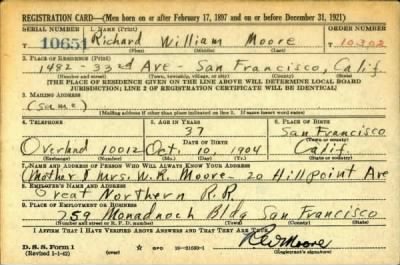 REGISTRATION CARD—(Men born on or after February 17, 1897 and on or before December 31, 1921)
SERIAL NUMBER 1. NAME (Print) ORDER NUMBER
T 10651 Richard William Moore 10,302
(First) (Middle) (Last)
2. PLACE OF RESIDENCE (Print)
1482 - 33d Ave - San Francisco, Calif.
(Number and street) (Town, township, village, or city) (County) (State)
[THE PLACE OF RESIDENCE GIVEN ON THE LINE ABOVE WILL DETERMINE LOCAL BOARD
JURISDICTION; LINE 2 OF REGISTRATION CERTIFICATE WILL BE IDENTICAL]
3. MAILING ADDRESS
(Same)
[Mailing address if other than place indicated on line 2. If same insert word same]
4. TELEPHONE 5. AGE IN YEARS 6. PLACE OF BIRTH
37 San Francisco
DATE OF BIRTH (Town or county)
Overland 10012 Oct. 10, 1904 Calif.
(Exchange) (Number) (Mo.) (Day) (Yr.) (State or country)
7. NAME AND ADDRESS OF PERSON WHO WILL ALWAYS KNOW YOUR ADDRESS
(Mother) Mrs. W. R. Moore - 20 Hillpoint Ave
8. EMPLOYER'S NAME AND ADDRESS
Great Northern R.R.
9. PLACE OF EMPLOYMENT OR BUSINESS
759 Monadnock Bldg San Francisco
(Number and street or R. F. D. number) (Town) (County) (State)
I AFFIRM THAT I HAVE VERIFIED ABOVE ANSWERS AND THAT THEY ARE TRUE.
D. S. S. Form 1 GPO 16—21630-1 RWMoore
(Revised 1-1-42) (over) (Registrant's signature)